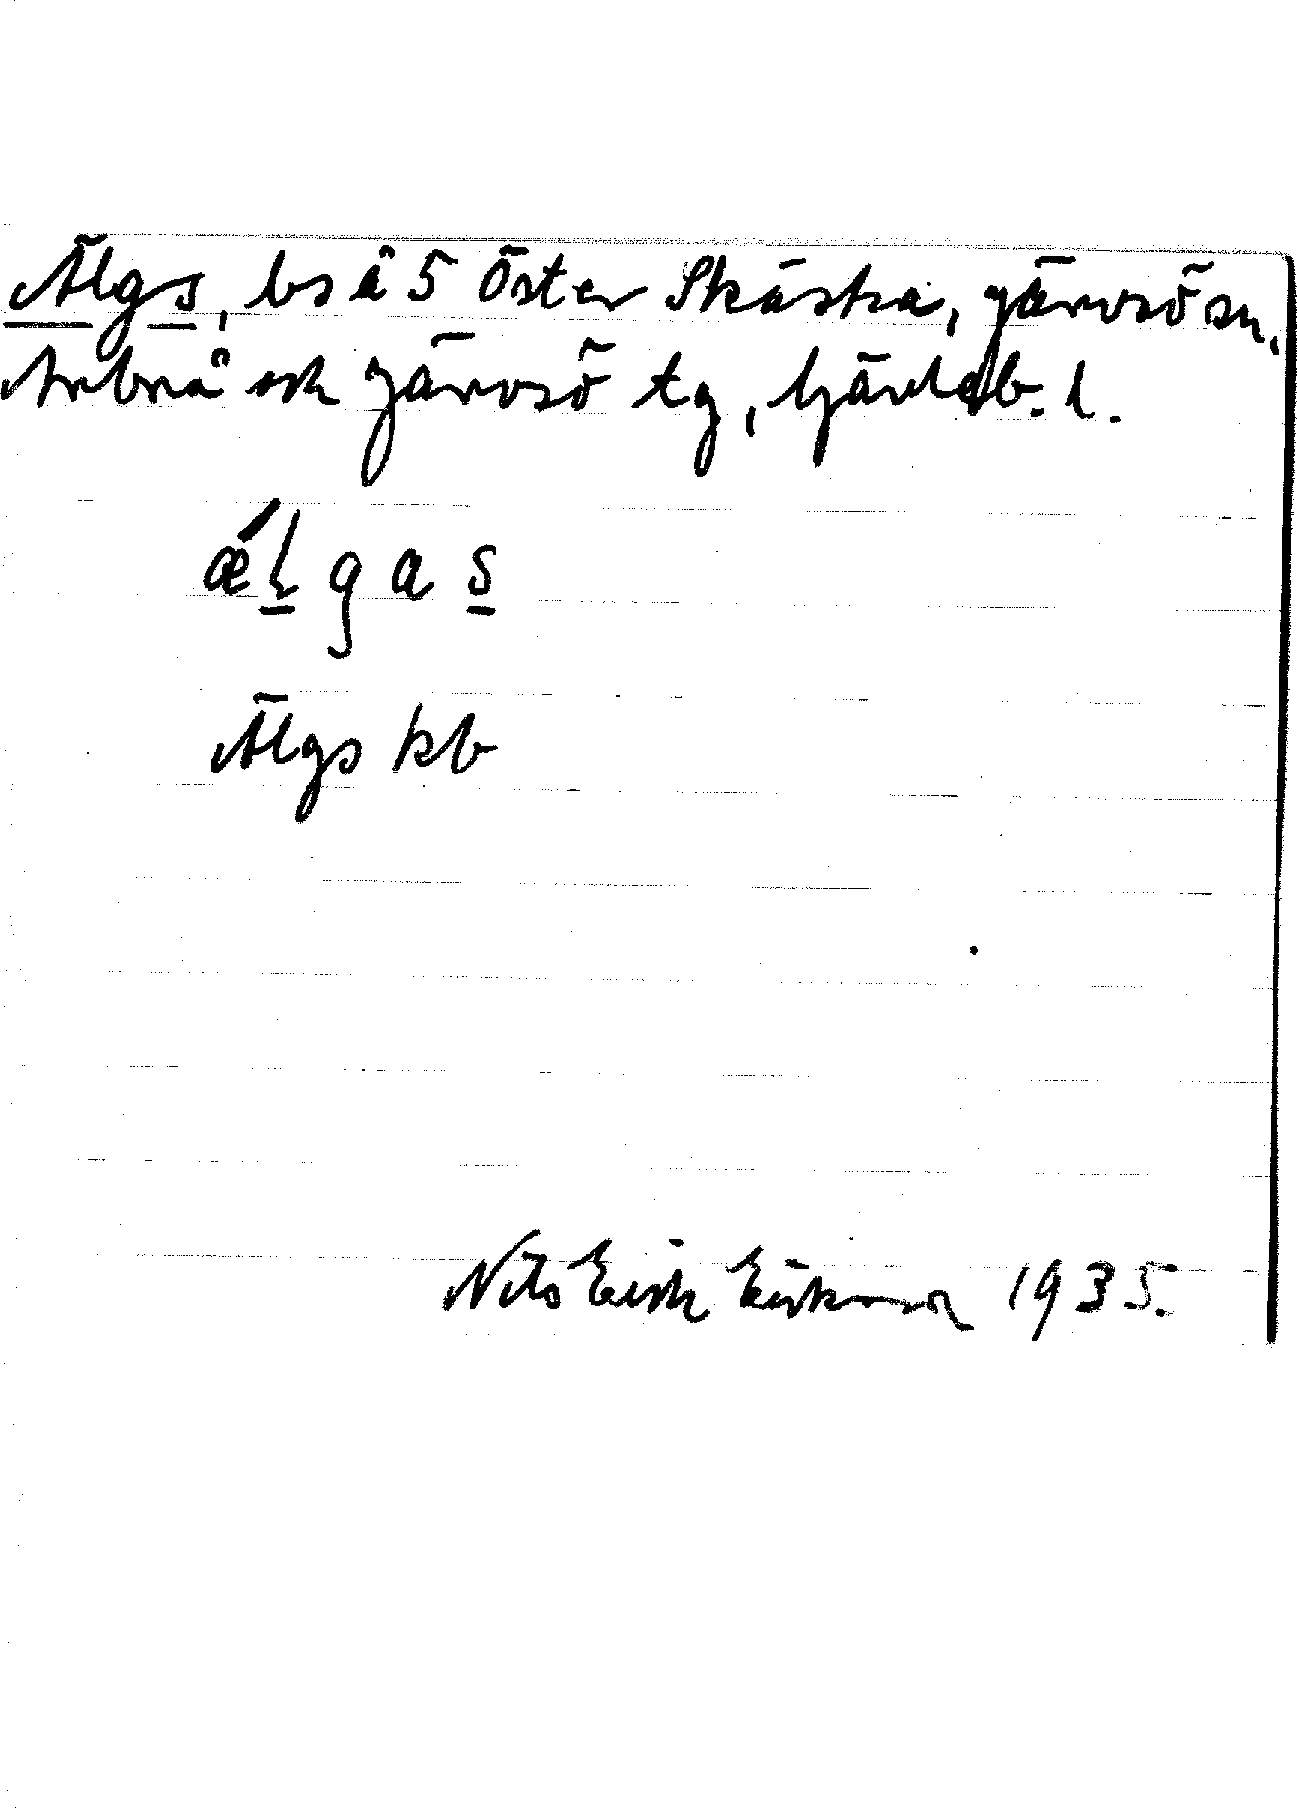 Älgs, bs å 5 Öster Skästra, Järvsö sn,
Arbrå och Järvsö tg, Gävleb. l.
ǽlgas
Älgs kb
Nils Erik Eriksson 1935.